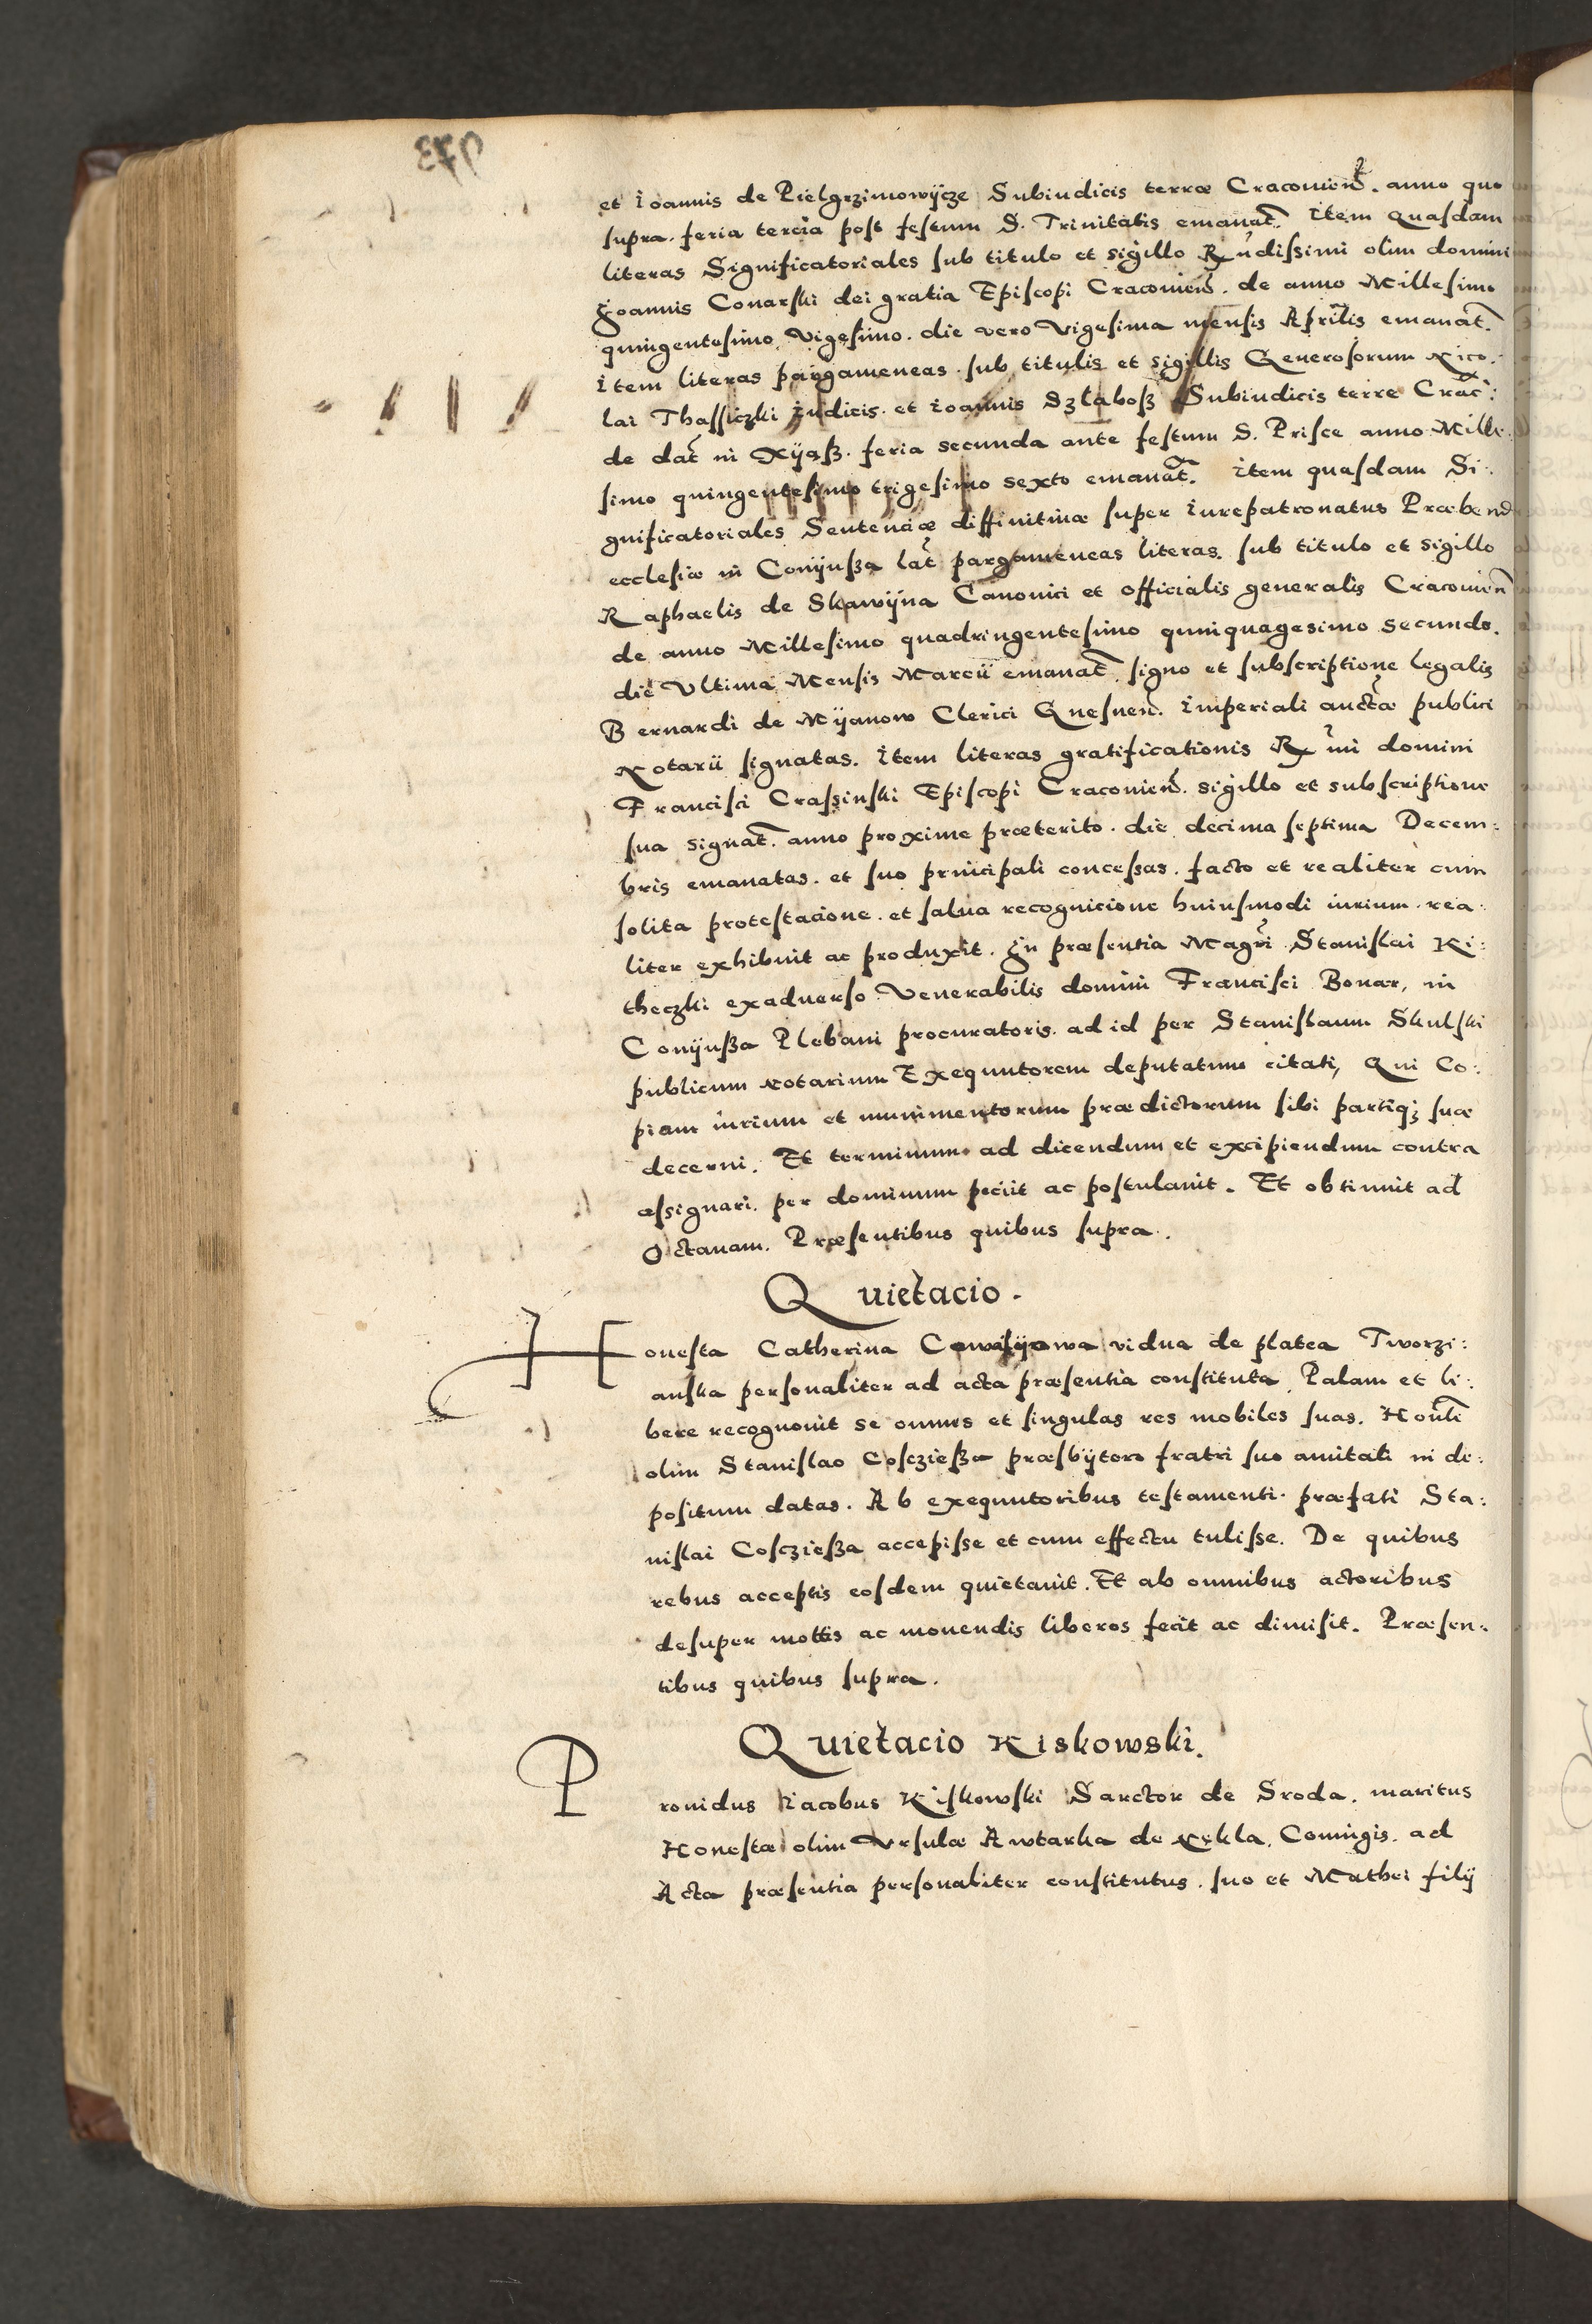 et Ioannis de Pielgrzimowÿcze Subiudicis terræ Cracouien̄. anno quo
supra. feria tercia post festum S. Trinitatis emanat̄. Item quasdam
literas Significatoriales sub titulo et sigillo Rn̄dissimi olim domini
Joannis Conarski dei gratia Episcopi Cracouien̄. de anno Millesimo
quingentesimo vigesimo. die vero vigesima mensis Aprilis emanat̄.
Item literas pargameneas. sub titulis et sigillis Generosorum Nico:
lai Thassiczki Iudicis. et Ioannis Szlaboß Subiudicis terre Crac̄:
de dat̄ in Xÿąß. feria secunda ante festum S. Prisce anno Mille:
simo quingentesimo trigesimo sexto emanat̄. Item quasdam Si:
gnificatoriales Sententiæ diffinitiuæ super Iurepatronatus Præbend
ecclesiæ in Conÿußa lat̄ pargameneas literas. sub titulo et sigillo
Raphaelis de Skawÿna Canonici et officialis generalis Cracouien̄
de anno Millesimo quadringentesimo quinquagesimo secundo.
die Vltima Mensis Marcii emanat̄. signo et subscriptione legalis
Bernardi de Mÿanow Clerici Gnesnen̄. Imperiali auctæ publici
Notarii signatas. Item literas gratificationis R mi domini
Francisci Crassinski Episcopi Cracouien̄. sigillo et subscriptione
sua signat̄. anno proxime præterito. die decima septima Decem:
bris emanatas. et suo principali concessas. facto et realiter cum
solita protestacione. et salua recognicione huiusmodi iurium. rea:
liter exhibuit ac produxit. In præsentia Magr̄i Stanislai Ki:
theczki exaduerso Venerabilis domini Francisci Bonar, in
Conÿußa Plebani procuratoris. ad id per Stanislaum Skulski
publicum notarium Exequutorem deputatum citati, Qui Co:
piam iurium et munimentorum prædictorum sibi partiq; suæ
decerni. Et terminum ad dicendum et excipiendum contra
assignari. per dominum peciit ac postulauit. Et obtinuit ad
Octauam. Præsentibus quibus supra.
Quietacio.
Honesta Catherina vidua de platea Tworzi:
anska personaliter ad acta præsentia constituta. Palam et li:
bere recognouit se omnes et singulas res mobiles suas. Honli
olim Stanislao Cosczießa præsbÿtero fratri suo amitali in de:
positum datas. Ab exequutoribus testamenti. præfati Sta:
nislai Cosczießa accepisse et cum effectu tulisse. De quibus
rebus acceptis eosdem quietauit. Et ab omnibus actoribus
desuper mottis ac mouendis liberos fecit ac dimisit. Præsen:
tibus quibus supra.
Quietacio Kiskowski.
Prouidus Iacobus Kiskowski Sarctor de Sroda. maritus
Honestæ olim Vrsulæ Awtarka de Nekla. Coniugis. ad
Acta præsentia personaliter constitutus. suo et Mathei filÿ